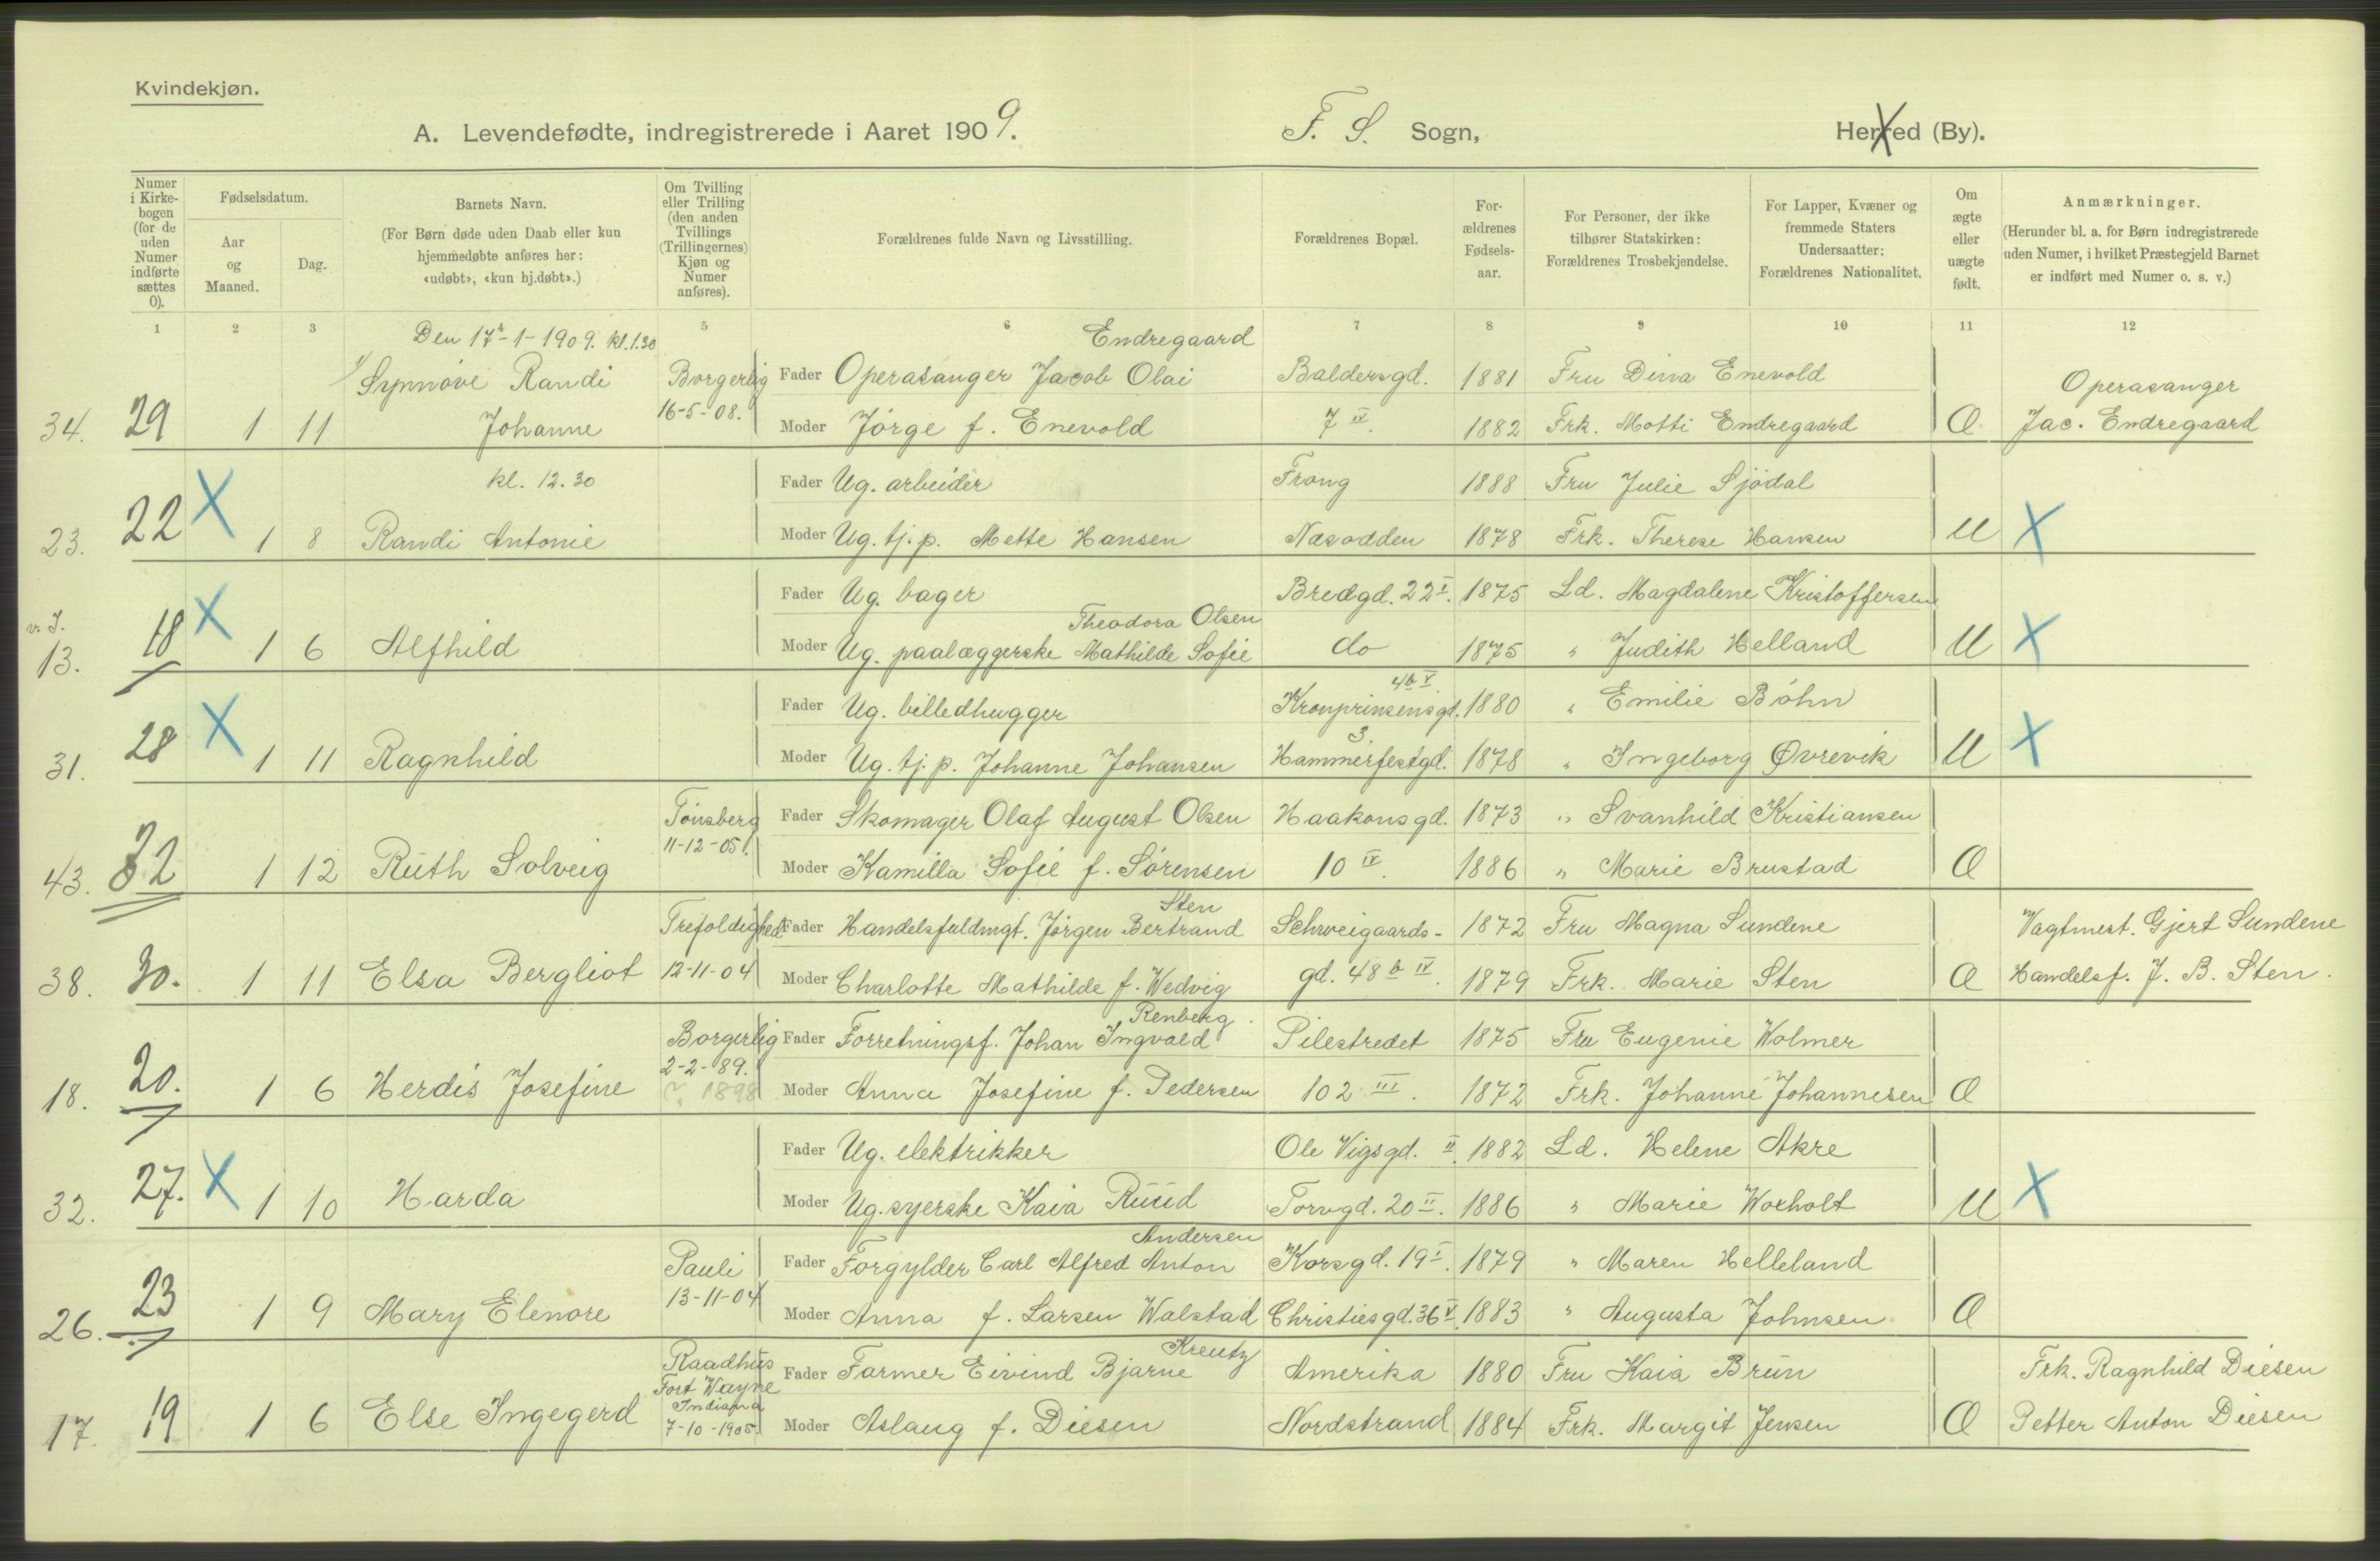 Kvindekjøn.
A. Levendefødte, indregistrerede i Aaret 1909. F. S. Sogn, Herred (By).
Numer i Kirkebogen (for de uden Numer indførte sættes 0).
Fødselsdatum.
Aar og Maaned.
Dag.
Barnets Navn.
(For Børn døde uden Daab eller kun hjemmedøbte anføres her: «udøbt», «kun hj.døbt».)
Om Tvilling eller Trilling (den anden Tvillings (Trillingernes) Kjøn og Numer anføres).
Forældrenes fulde Navn og Livsstilling.
Forældrenes Bopæl.
Forældrenes Fødselsaar.
For Personer, der ikke tilhører Statskirken: Forældrenes Trosbekjendelse.
For Lapper, Kvæner og fremmede Staters Undersaatter: Forældrenes Nationalitet.
Om ægte eller uægte født.
Anmærkninger.
(Herunder bl. a. for Børn indregistrerede uden Numer, i hvilket Præstegjeld Barnet er indført med Numer o. s. v.)
1 2 3 5 6 7 8 9 10 11 12
Den 17-1-1909. kl. 1.30 Endregaard
Synnøve Randi Borgerlig Fader Operasanger Jacob Olai Baldersgd. 1881 Fru Dina Enevold Operasanger
34. 29 1 11 Johanne 16-5-08. Moder Jørge f. Enevold 7 IV. 1882 Frk. Motti Endregaard O Jac. Endregaard
kl. 12.30 Fader Ug. arbeider Frong 1888 Fru Julie Sjödal
23. 22 X 1 8 Randi Antonie Moder Ug. tj. p. Mette Hansen Næsodden 1878 Frk. Therese Hansen U X
Fader Ug. bager Bredgd. 22 I. 1875 Ld. Magdalene Kristoffersen
Theodora Olsen
13. 18 X 1 6 Alfhild Moder Ug. paalæggerske Mathilde Sofie do 1875 " Judith Helland U X
4b V.
Fader Ug. billedhugger Kronprinsensgd. 1880 " Emilie Bøhn
3.
31. 28 X 1 11 Ragnhild Moder Ug. tj. p. Johanne Johansen Hammerfestgd. 1878 " Ingeborg Øvrevik U X
Tønsberg Fader Skomager Olaf August Olsen Haakonsgd. 1873 " Svanhild Kristiansen
43. 32 1 12 Ruth Solveig 11-12-05. Moder Kamilla Sofie f. Sørensen 10 IV. 1886 " Marie Brustad O
Sten
Trefoldighed Fader Handelsfuldmgt. Jørgen Bertrand Schweigaards- 1872 Fru Magna Sundene Vagtmest. Gjert Sundene
38. 30. 1 11 Elsa Bergliot 12-11-04 Moder Charlotte Mathilde f. Wedvig gd. 48 b IV. 1879 Frk. Marie Sten O Handelsf. J. B. Sten.
Renberg.
Borgerlig Fader Forretningsf. Johan Ingvald Pilestredet 1875 Fru Eugenie Wolmer
2-2-89.
18. 20. 1 6 Herdis Josefine ? 1898 Moder Anna Josefine f. Pedersen 102 III. 1872 Frk. Johanne Johannesen O
Fader Ug. elektrikker Ole Vigsgd. II. 1882 Ld. Helene Akre
32. 27. X 1 10 Harda Moder Ug. syerske Kaia Ruud Torvgd. 20 II. 1886 " Marie Woxholt U X
Andersen
Pauli Fader Forgylder Carl Alfred Anton Korsgd. 19 I. 1879 " Maren Helleland
26. 23 1 9 Mary Elenore 13-11-04 Moder Anna f. Larsen Walstad Christiesgd. 36 V. 1883 " Augusta Johnsen O
Kreutz
Raadhus Fader Farmer Eivind Bjarne Amerika 1880 Fru Kaia Brun Frk. Ragnhild Diesen
Fort Wayne
Indiana
17. 19 1 6 Else Ingegerd 7-10-1905. Moder Aslaug f. Diesen Nordstrand 1884 Frk. Margit Jensen O Petter Anton Diesen